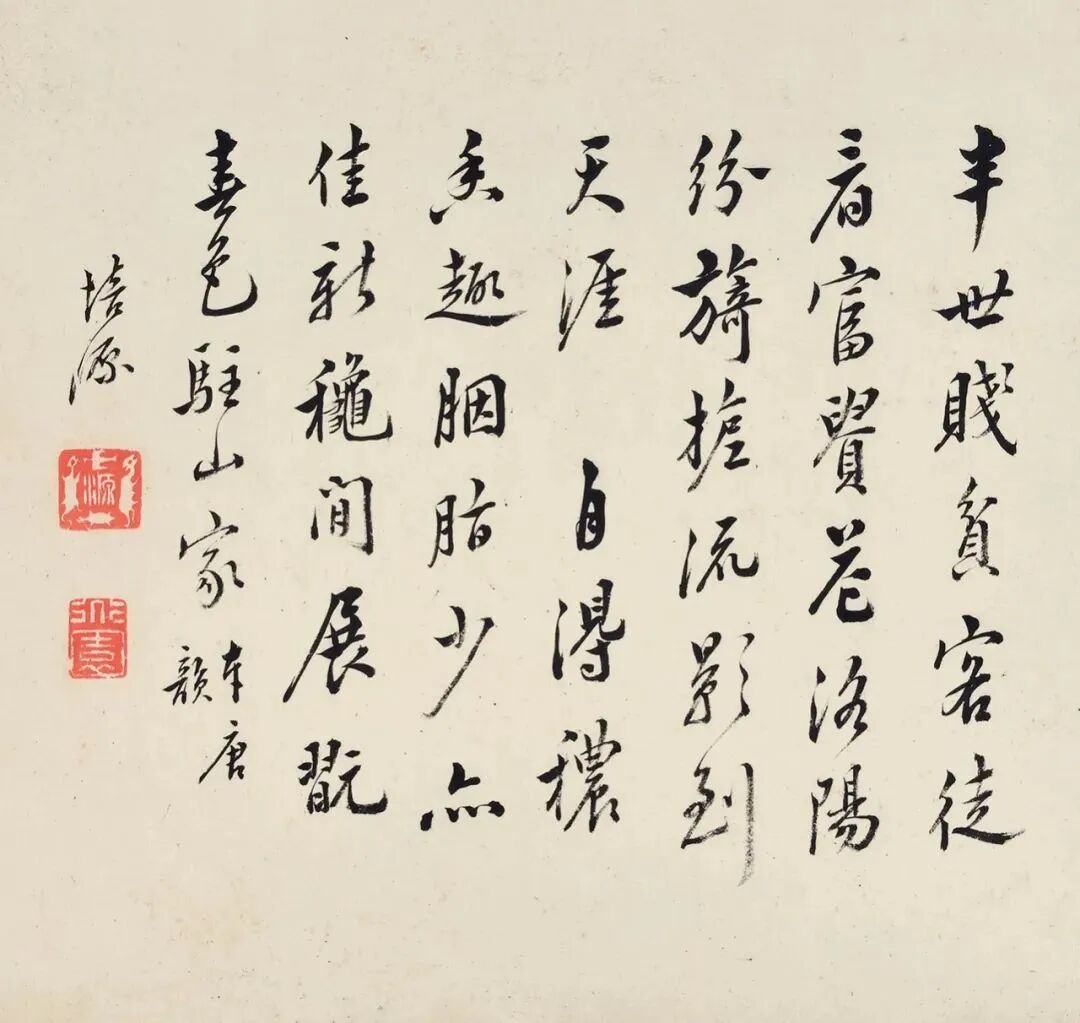 半世賤貧客徒
看富貴花洛陽
紛旖旎流影到
天涯 自得穠
香趣胭脂少亦
佳新龝閒展翫
春色駐山家 本唐
韻
培源